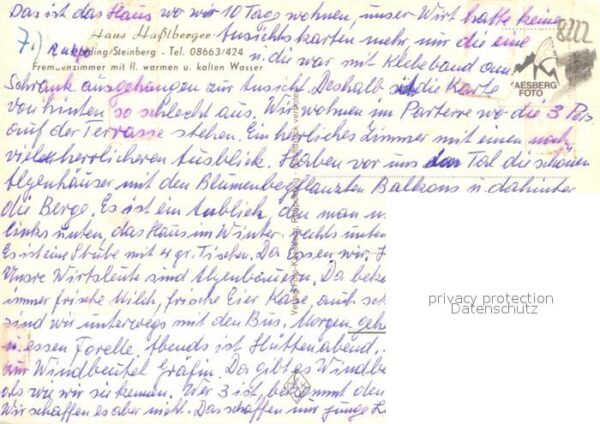 Das ist das Haus wo wir 10 Tage wohnen, unser Wirt hatte keine
Haus Haßlberger
Ansichtskarten mehr nur die eine
8222
7.)
Ruhpolding/Steinberg - Tel. 08663/424
u. die war mit Klebeband am
Fremdenzimmer mit fl. warmen u. kalten Wasser
AESBERG
FOTO
Schrank ausgehangen zur Ansicht. Deshalb sieht die Karte
von hinten so schlecht aus. Wir wohnen im Parterre wo die 3 Pers
auf der Terrasse stehen. Ein herrliches Zimmer mit einen noch
viel herrlicheren Ausblick. Haben vor uns das Tal die schönen
Algenhäuser mit den Blumenbepflanzten Balkons u dahinter
die Berge. Es ist ein Anblick, den man
links unten, das Haus im Winter. rechts unten
Es ist eine Stube mit 4 gr. Tischen. Da Essen wir
Unsre Wirtsleute sind Algenbauern. Da
immer frische Milch, frische Eier Käse, auch
sind wir unterwegs mit den Bus. Morgen
u. essen Forelle. Abends ist Hüttenabend,
zur Windbeutel Gräfin. Da gibt es
als wie wir sie kennen. Wer 3 ist, bekommt den
Wir schaffen es aber nicht. Das schaffen nur junge
privacy protection
Datenschutz